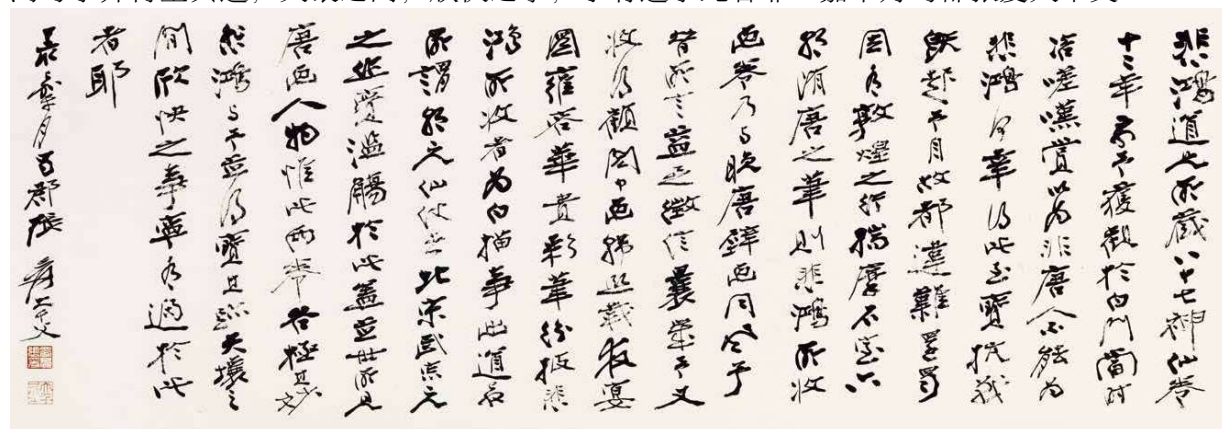 悲鴻道兄所藏八十七神仙卷
十二年前予獲觀於白門當時
咨嗟嘆賞以為非唐人不能為
悲鴻何幸得此至寶抗戰
既起予自故都違難還蜀
因為敦煌之行揣摩石室六
朝隋唐之筆則悲鴻所收
畫卷乃與晚唐壁畫同風予
昔所言益足徵信曩歲予又
收得顧閎中畫韓熙載夜宴
圖雍容華貴彩筆紛披悲
鴻所收者為白描事出道君
所謂朝元仙仗者北宋武宗元
之作實濫觴於此蓋並世所見
唐畫人物惟此兩卷各極其妙
悲鴻與予並得寶其跡天壤之
間欣快之事寧有過於此
者耶
嘉平月蜀郡張爰大千父